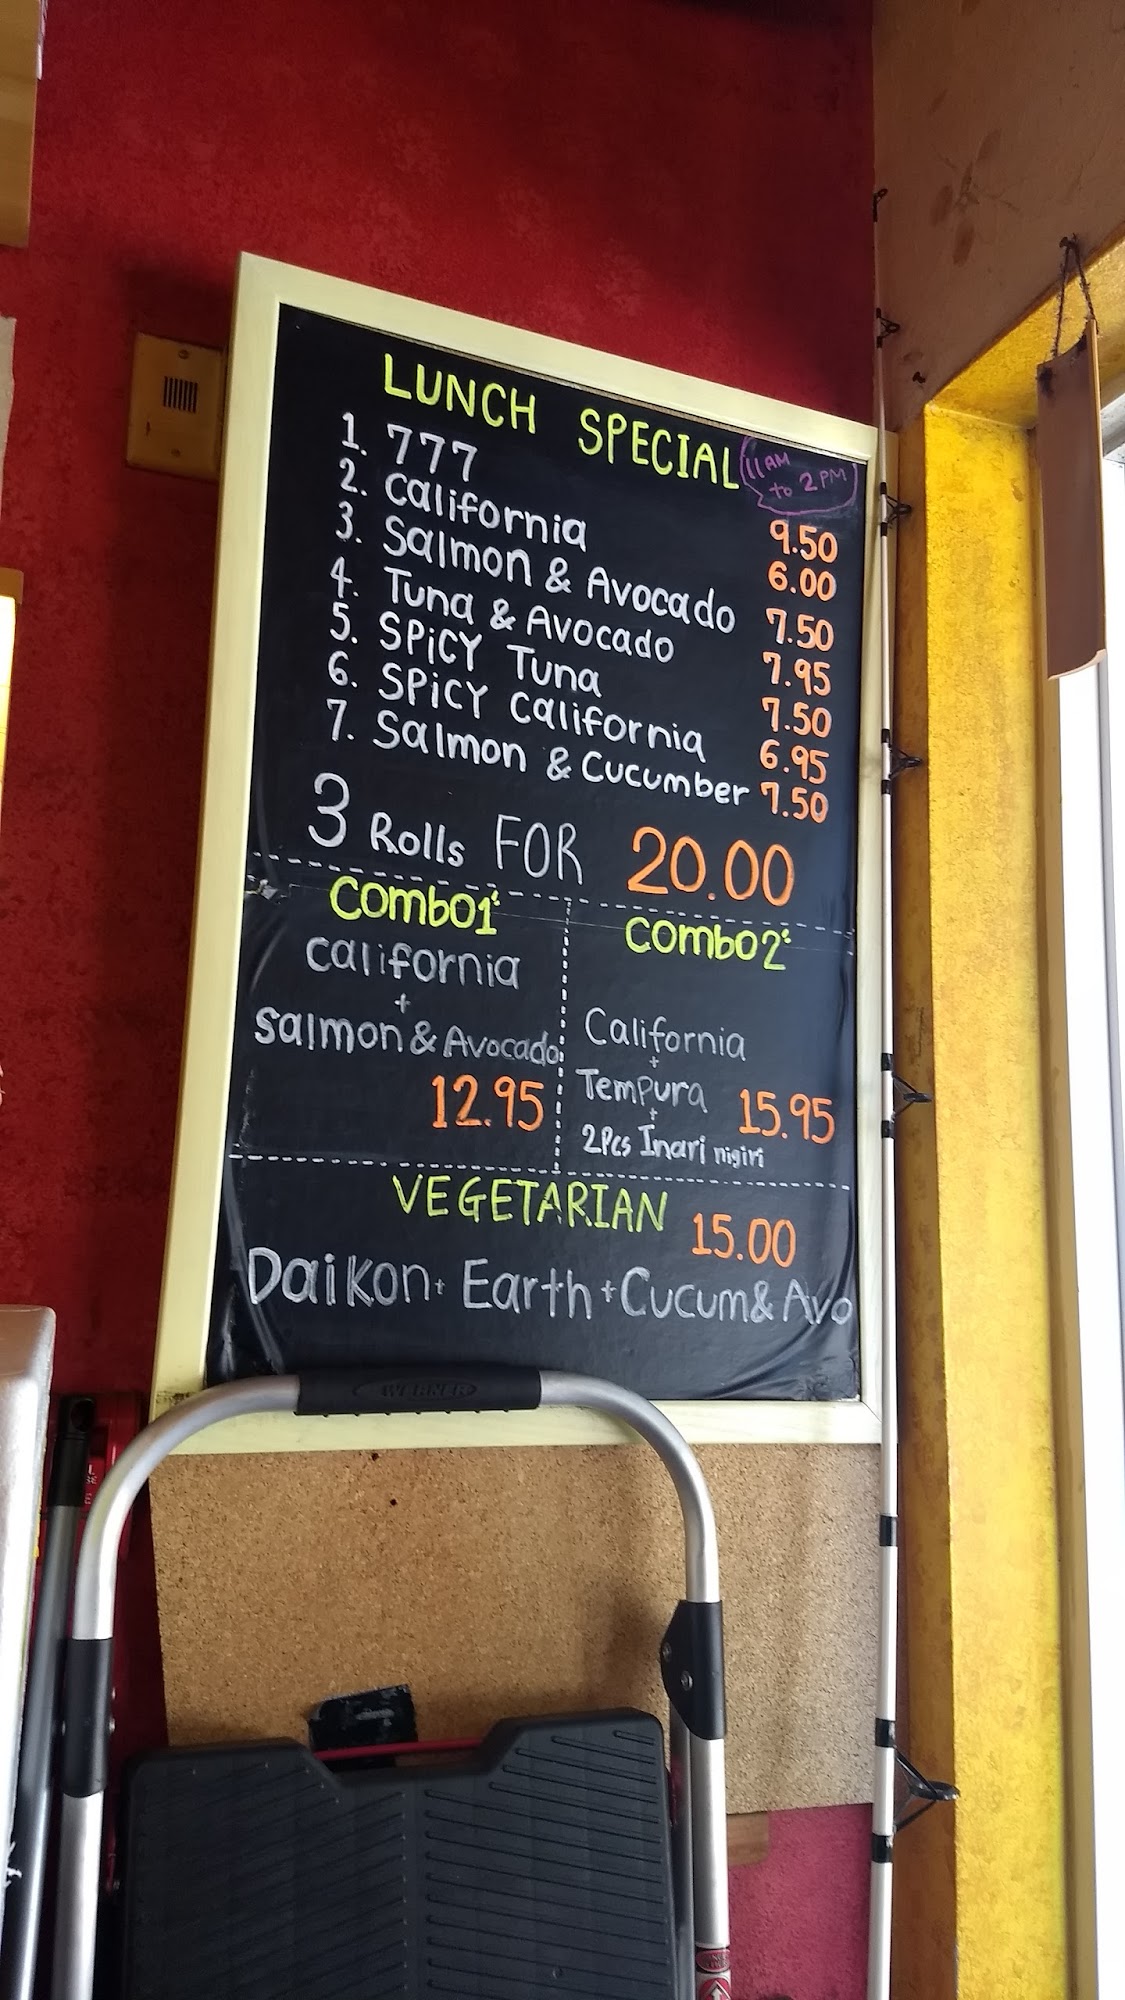 LUNCH SPECIAL
11AM
to 2PM
1. 777 9.50
2. California 6.00
3. Salmon & Avocado 7.50
4. Tuna & Avocado 7.95
5. SPiCY Tuna 7.50
6. SPiCY California 6.95
7. Salmon & Cucumber 7.50
3 Rolls FOR 20.00
Combo1:
California
+
Salmon & Avocado
12.95
Combo2:
California
+
Tempura 15.95
+
2Pcs Inari nigiri
VEGETARIAN 15.00
Daikon + Earth + Cucum & Avo
WERNER